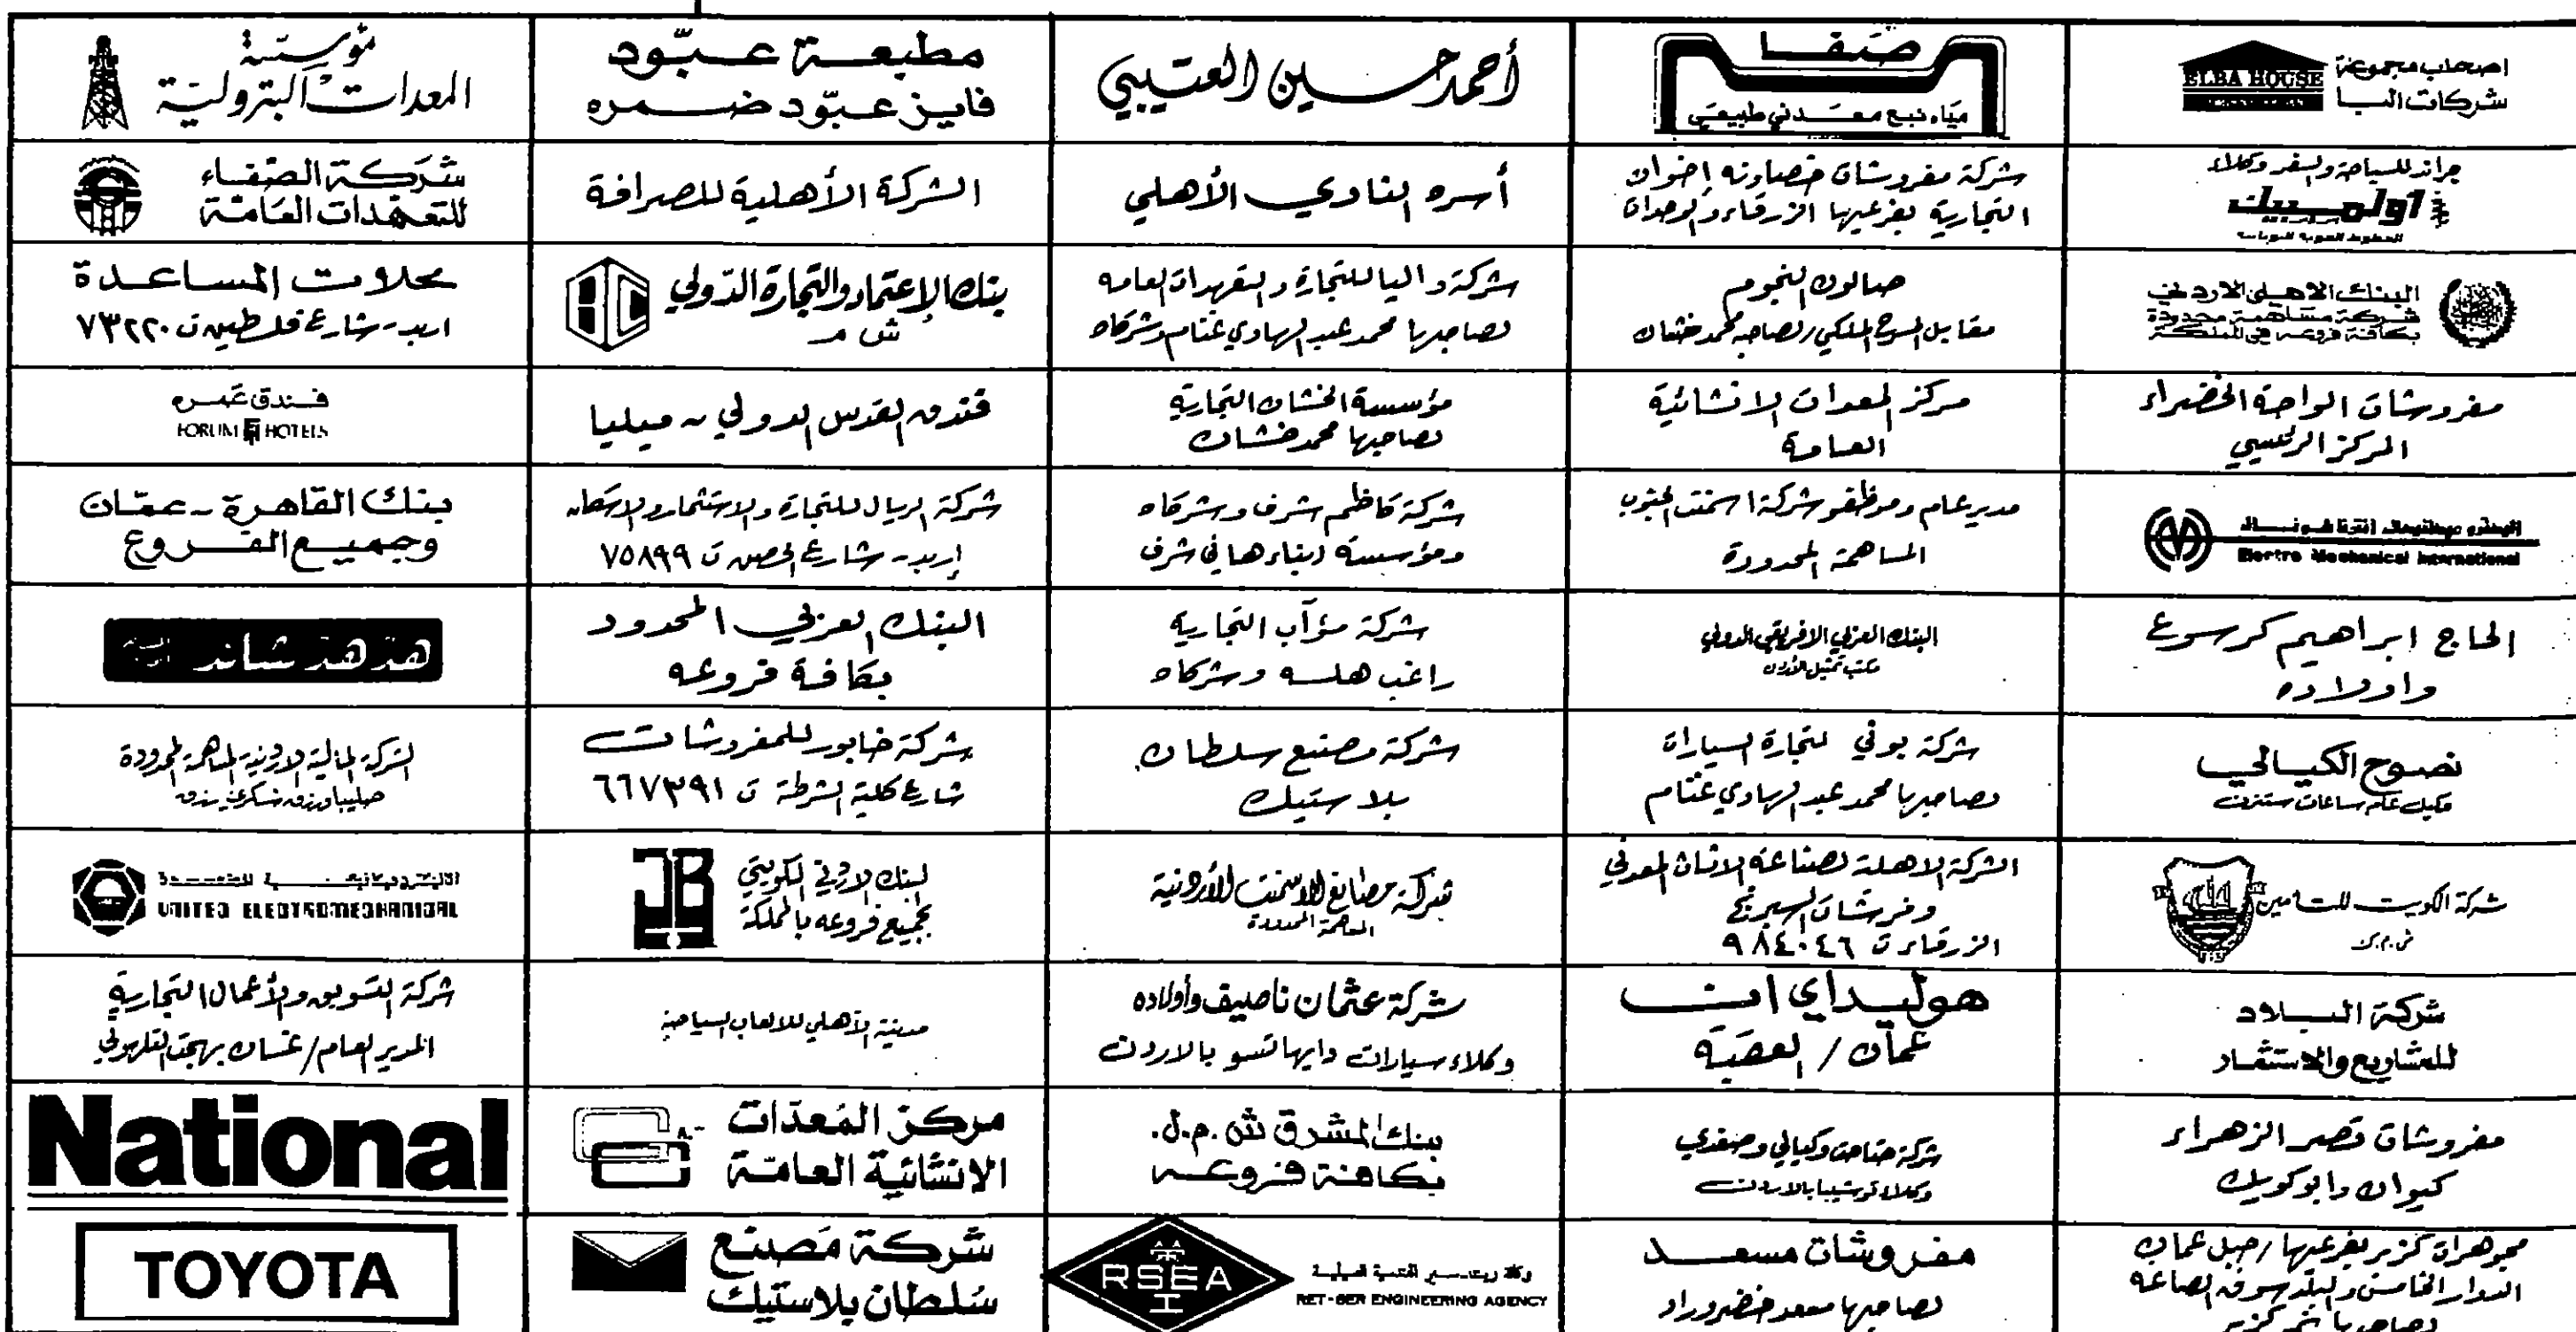 اصحاب مجموعة
شركات البا
ELBA HOUSE
صَفا
مياه نبع معدني طبيعي
أحمد حسين العتيبي
مطبعة عبّود
فايز عبّود ضمره
مؤسسة
المعدات البترولية
جراند للسياحة والسفر وكلاء
اولمبيك
شركة مفروشات خصاونه إخوان
التجارية بفرعيها الزرقاء والوحدات
أسره النادي الأهلي
الشركة الأهلية للصرافة
شركة الصفاء
للتعهدات العامة
البنك الاهلي الاردني
شركة مساهمة محدودة
بكافة فروعه في المملكة
صالون النجوم
مقابل المسرح الملكي/لصاحبه محمد خشان
شركة داليا للتجارة والتعهدات العامه
لصاحبها محمد عبدالهادي غنام وشركاه
بنك الإعتماد والتجارة الدّولي
ش م
محلات المساعدة
اربد - شارع فلسطين ت ٧٣٢٢٠
مفروشات الواحة الخضراء
المركز الرئيسي
مركز المعدات الانشائية
العامة
مؤسسة الخشان التجارية
لصاحبها محمد خشان
فندق القدس الدولي - ميليا
فندق عمره
FORUM HOTELS
Electro Mechanical International
مدير عام وموظفو شركة اسمنت الجنوب
المساهمة المحدودة
شركة كاظم شرف وشركاه
ومؤسسة ابناء هاني شرف
شركة الريال للتجارة والاستثمار والاسكان
إربد - شارع الحصن ت ٧٥٨٩٩
بنك القاهرة - عمّان
وجميع الفروع
الحاج ابراهيم كرسوع
واولاده
البنك العربي الافريقي الدولي
مكتب تمثيل الأردن
شركة مؤآب التجارية
راغب هلسه وشركاه
البنك العربي المحدود
بكافة فروعه
هدهد شاند
نصوح الكيالي
وكيل عام ساعات ستزن
شركة بوني لتجارة السيارات
لصاحبها محمد عبدالهادي غنام
شركة مصنع سلطان
بلاستيك
شركة خابور للمفروشات
شارع كلية الشرطة ت ٦٦٧٣٩١
الشركة المالية الاردنية المساهمة المحدودة
شركة الكويت للتأمين
ش.م.ك
الشركة الاهلية لصناعة الاثاث المعدني
وفرشات السبرنج
الزرقاء ت ٩٨٤٠٤٦
شركة مصانع الاسمنت الأردنية
المساهمة المحدودة
البنك الاردني الكويتي
بجميع فروعه بالمملكة
JB
UNITED ELECTROMECHANICAL
شركة البلاد
للمشاريع والاستثمار
هوليداي إن
عمان / العقبة
شركة عثمان ناصيف وأولاده
وكلاء سيارات دايهاتسو بالاردن
مدينة الأهلي للالعاب السياحية
شركة التسويق والأعمال التجارية
المدير العام / غسان بهجت التلهوني
مفروشات قصر الزهراء
كيوان وابو كويك
وكلاء توشيبا بالاردن
بنك المشرق ش.م.ل.
بكافة فروعه
مركز المعدّات
الانشائية العامة
National
مجوهرات كزبر بفرعيها / جبل عمان
الدوار الخامس والبلد سوق الصاغة
مفروشات مسعد
لصاحبها مسعد خضر وراد
RSEA
RET-SER ENGINEERING AGENCY
شركة مصنع
سلطان بلاستيك
TOYOTA